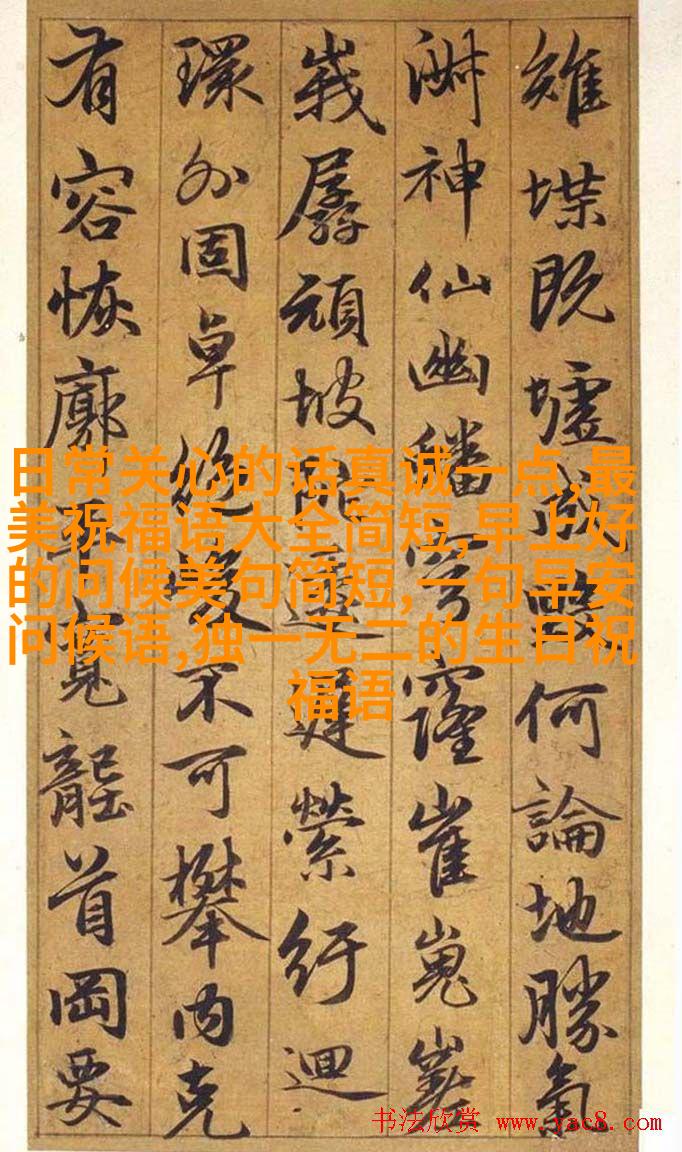 雉堞既墟成何論地勝氣
神仙幽蟠穹窿崔嵬嵯
峩孱頑坡邐縈紆迴
環外固卓絕不可攀内克
有容恢廓平寬首岡要
日常关心的话真诚一点,最
美祝福语大全简短,早上好
的问候美句简短,一句早安
问候语,独一无二的生日祝
福语
书法欣赏 www.yac8.com